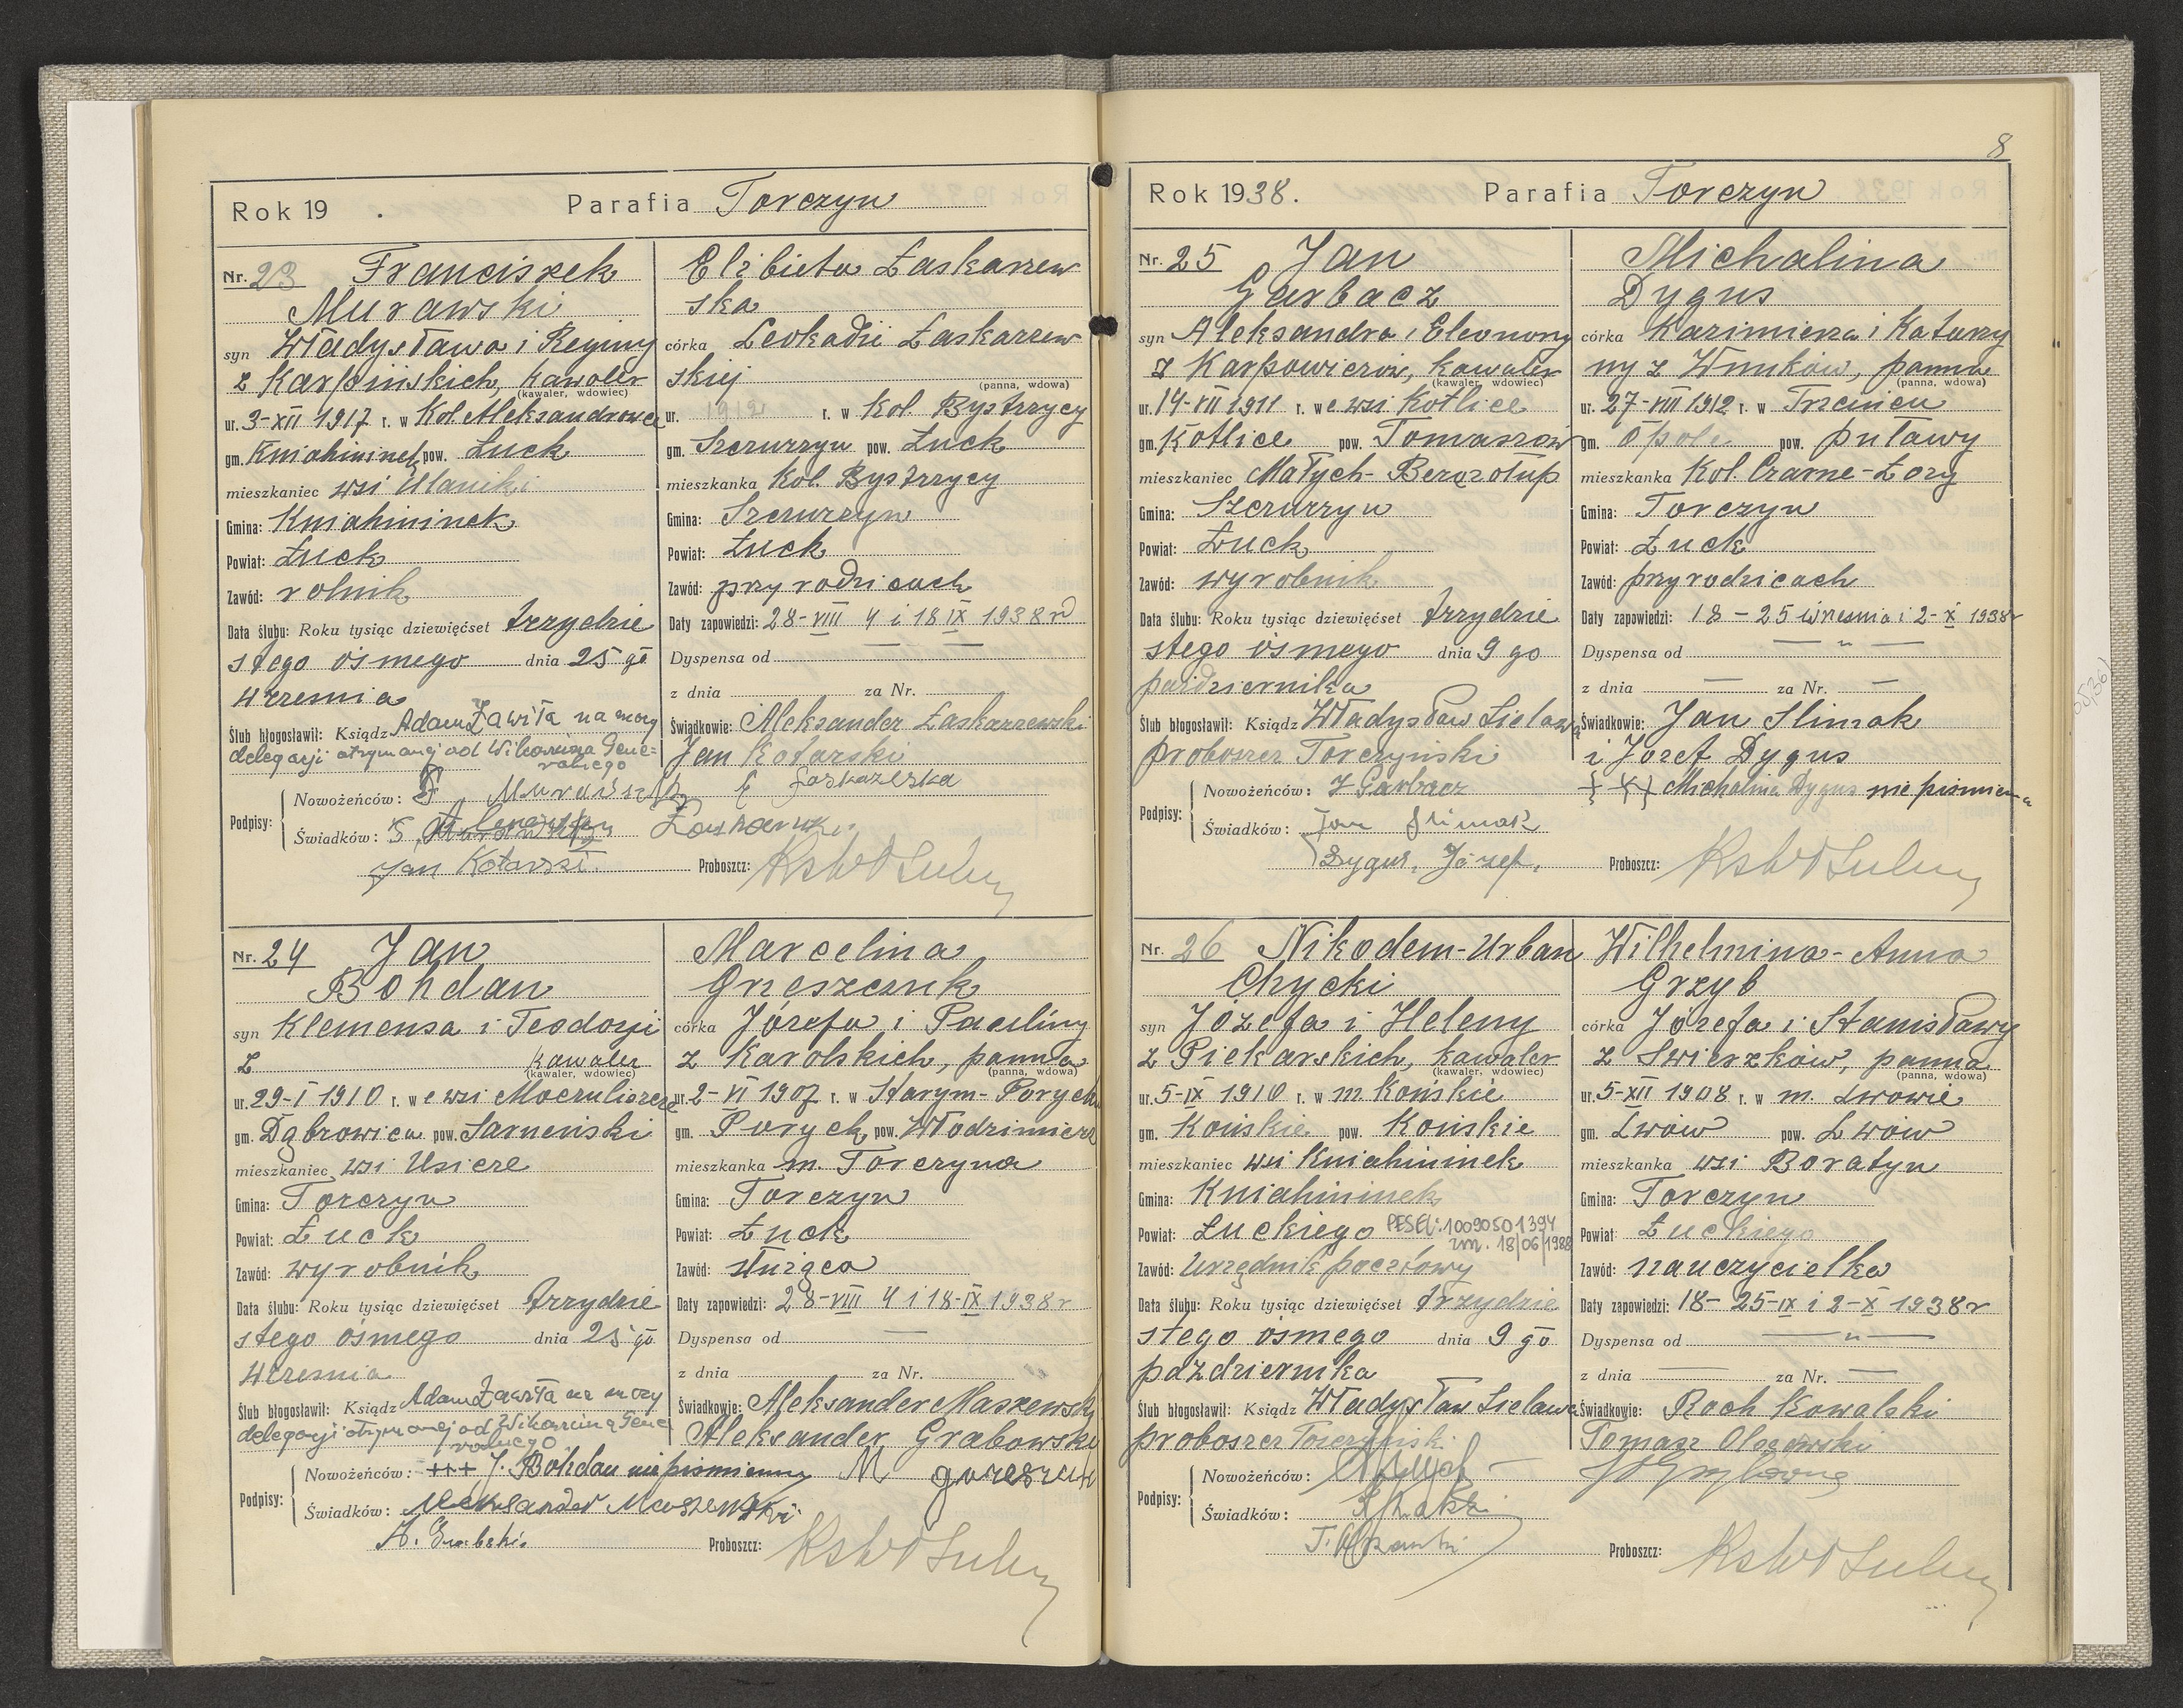 Rok 19 . Parafia Torczyn
Nr. 23 Franciszek
Murawski
syn Władysława i Reginy
z Karpińskich, kawaler
(kawaler, wdowiec)
ur. 3-XII 1917 r. w Kol. Aleksandrowce
gm. Kniahininek pow. Łuck
mieszkaniec wsi Ułaniki
Gmina: Kniahininek
Powiat: Łuck
Zawód: rolnik
Data ślubu: Roku tysiąc dziewięćset trzydzie
stego ósmego dnia 25 go
wrzesnia
Ślub błogosławił: Ksiądz Adam Zawiła na mocy
delegacji otrzymanej od Wikariusza Gene=
ralnego
Elżbieta Łaskarzew
ska
córka Leokadii Łaskarzew
skiej
(panna, wdowa)
ur. 1912 r. w Kol. Bystrzycy
gm. Szczurzyn pow. Łuck
mieszkanka Kol. Bystrzycy
Gmina: Szczurzyn
Powiat: Łuck
Zawód: przy rodzicach
Daty zapowiedzi: 28-VIII 4 i 18 IX 1938 r
Dyspensa od — —
z dnia za Nr.
Świadkowie: Aleksander Łaskarzewski
Jan Kotarski
Podpisy: Nowożeńców: F Murawski E Łaskazeska
Świadków:
Jan Kotarski. Proboszcz:
Nr. 24 Jan
Bohdan
syn Klemensa i Teodozji
z kawaler
(kawaler, wdowiec)
ur. 29-I 1910 r. we wsi Moczuliszcze
gm. Dąbrowica pow. Sarneński
mieszkaniec wsi Usicze
Gmina: Torczyn
Powiat: Łuck
Zawód: wyrobnik
Data ślubu: Roku tysiąc dziewięćset trzydzie
stego ósmego dnia 25 go
wrzesnia
Ślub błogosławił: Ksiądz Adam Zawiła na mocy
delegacji otrzymanej od Wikariusza Gene
ralnego
Marcelina
Grzeszczuk
córka Józefa i Pauliny
z Karolskich, panna
(panna, wdowa)
ur. 2-VI 1907 r. w Starym-Porycku
gm. Poryck pow. Włodzimierz
mieszkanka m. Torczyna
Gmina: Torczyn
Powiat: Łuck
Zawód: służąca
Daty zapowiedzi: 28-VIII 4 i 18-IX 1938 r
Dyspensa od —
z dnia za Nr.
Świadkowie: Aleksander Maszewski
Aleksander Grabowski
Podpisy: Nowożeńców: +++ J. Bohdan niepismienny M
Świadków: Aleksander Maszewski
Proboszcz:
8
Rok 1938. Parafia Torczyn
Nr. 25 Jan
Garbacz
syn Aleksandra i Eleonory
z Karpowiczów, kawaler
(kawaler, wdowiec)
ur. 14-VII 1911 r. we wsi Kotlice
gm. Kotlice pow. Tomaszów
mieszkaniec Małych-Berezołup
Gmina: Szczurzyn
Powiat: Łuck
Zawód: wyrobnik
Data ślubu: Roku tysiąc dziewięćset trzydzie
stego ósmego dnia 9 go
października
Ślub błogosławił: Ksiądz Władysław Sielawa
proboszcz Torczyński
Michalina
Dygus
córka Kazimierza i Katarzy
ny z Wnuków, panna
(panna, wdowa)
ur. 27-VIII 1912 r. w Trzcińcu
gm. Opole pow. Puławy
mieszkanka Kol. Czarne-Łozy
Gmina: Torczyn
Powiat: Łuck
Zawód: przy rodzicach
Daty zapowiedzi: 18-25 wrzesnia i 2-X 1938 r
Dyspensa od — „ —
z dnia — za Nr. —
Świadkowie: Jan Slimak
i Józef Dygus
Podpisy: Nowożeńców: J Garbacz +++ Michalina Dygus niepismienna
Świadków: Jan Slimak
Dygus, Józef. Proboszcz:
Nr. 26 Nikodem-Urban
Chycki
syn Józefa i Heleny
z Piekarskich, kawaler
(kawaler, wdowiec)
ur. 5-IX 1910 r. w m. Końskie
gm. Końskie pow. Końskie
mieszkaniec wsi Kniahininek
Gmina: Kniahininek
Powiat: Łuckiego PESEL: 10090501394
zm. 18/06/1988
Zawód: Urzędnik pocztowy
Data ślubu: Roku tysiąc dziewięćset trzydzie
stego ósmego dnia 9 go
października
Ślub błogosławił: Ksiądz Władysław Sielawa
proboszcz Torczyński
Wilhelmina-Anna
Grzyb
córka Józefa i Stanisławy
z Swierzków, panna
(panna, wdowa)
ur. 5-XII 1908 r. w m. Lwowie
gm. Lwów pow. Lwów
mieszkanka wsi Boratyn
Gmina: Torczyn
Powiat: Łuckiego
Zawód: nauczycielka
Daty zapowiedzi: 18-25-IX i 2-X 1938 r
Dyspensa od — „ —
z dnia — za Nr. —
Świadkowie: Roch Kowalski
Tomasz Olszewski
Podpisy: Nowożeńców:
Świadków:
Proboszcz: